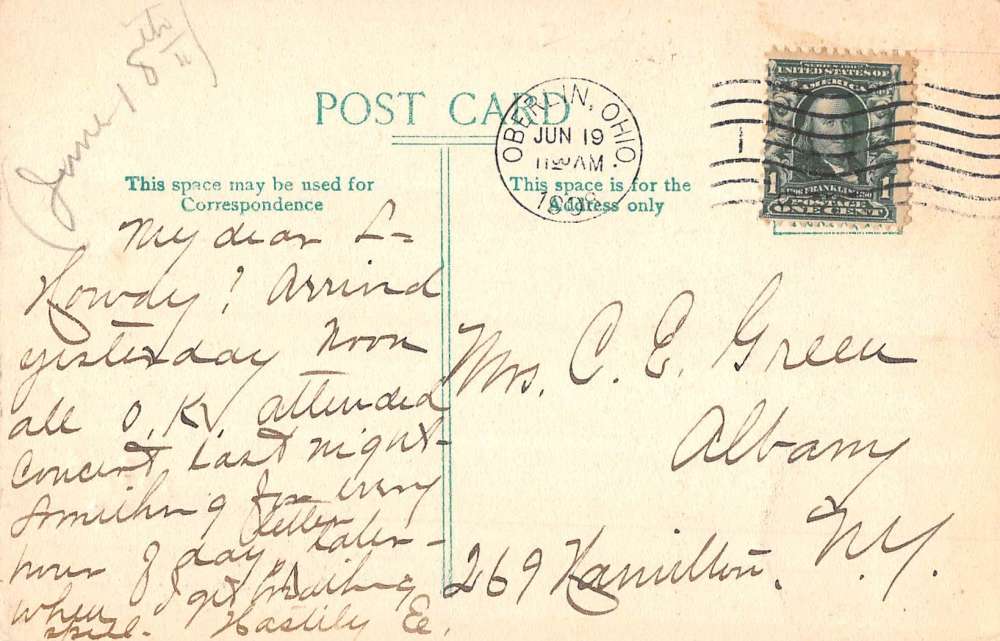 (June 18th)
POST CARD
OBERLIN, OHIO.
JUN 19
11 30 AM
190
1
SERIES 1902
UNITED STATES OF
AMERICA
FRANKLIN
POSTAGE
ONE CENT
This space may be used for
Correspondence
This space is for the
Address only
My dear L-
Howdy! Arrived
yesterday Noon
all O.K. attended
Concert Last night-
Something for every
hour of day. Letter Later-
when I get breathing
spell. Hastily Ee.
Mrs. C. E. Green
Albany
N.Y.
269 Hamilton.